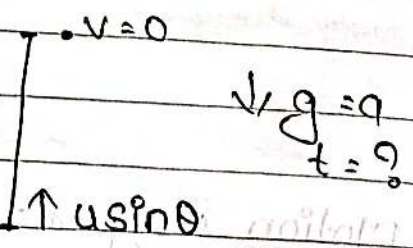 v = 0
↓ g = a
t = ?
↑ u sinθ